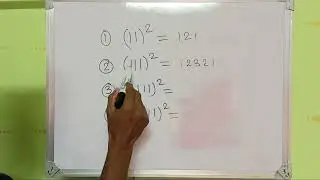 ① (11)² = 121
② (111)² = 12321
③ 11)² =
1)² =